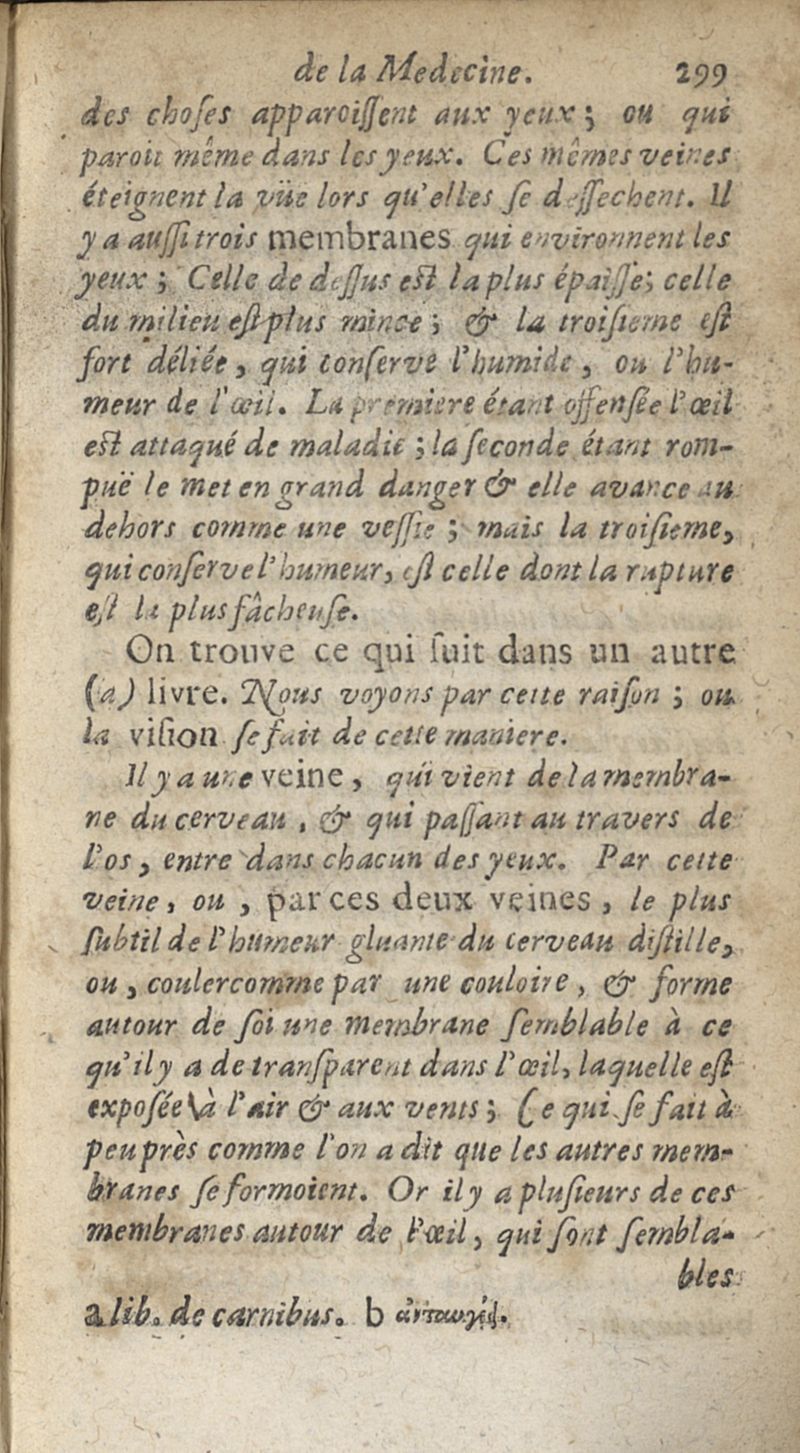 de la Medecine. 299
des choſes apparoiſſent aux yeux; ou qui
paroit même dans les yeux. Ces mêmes veines
éteignent la vüe lors qu'elles ſe deſſechent. Il
y a auſſi trois membranes qui environnent les
yeux; Celle de deſſus eſt la plus épaiſſe; celle
du milieu eſt plus mince; & la troiſieme eſt
fort déliée, qui conſerve l'humide, ou l'hu-
meur de l'œil. La premiere étant offenſée l'œil
eſt attaqué de maladie; la ſeconde étant rom-
puë le met en grand danger & elle avance au
dehors comme une veſſie; mais la troiſieme,
qui conſerve l'humeur, eſt celle dont la rupture
eſt la plus fâcheuſe.
On trouve ce qui ſuit dans un autre
(a) livre. Nous voyons par cette raiſon; ou
la viſion ſe fait de cette maniere.
Il y a une veine, qui vient de la membra-
ne du cerveau, & qui paſſant au travers de
l'os, entre dans chacun des yeux. Par cette
veine, ou, par ces deux veines, le plus
ſubtil de l'humeur gluante du cerveau diſtille,
ou, couler comme par une couloire, & forme
autour de ſoi une membrane ſemblable à ce
qu'il y a de tranſparent dans l'œil, laquelle eſt
expoſée à l'air & aux vents; Ce qui ſe fait à
peu près comme l'on a dit que les autres mem-
branes ſe formoient. Or il y a pluſieurs de ces
membranes autour de l'œil, qui ſont ſembla-
bles
a lib. de carnibus. b